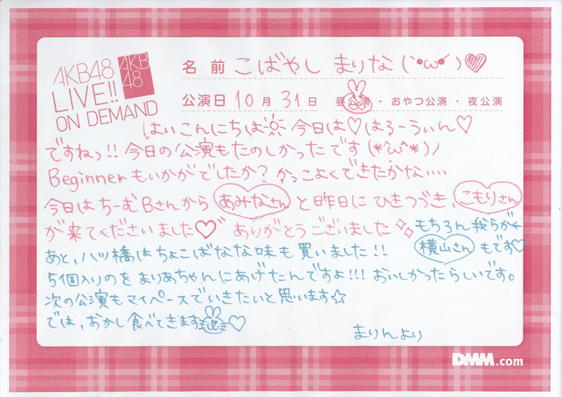 AKB48
LIVE!!
ON DEMAND
AKB
48
名前 こばやし まりな(`•ω•´)♡
公演日 10月31日 昼公演・おやつ公演・夜公演
はい こんにちは☼ 今日は♡はろーうぃん♡
ですねっ!! 今日の公演もたのしかったです(*´ω`*)ノ
Beginnerもいかがでしたか? かっこよくできたかな‥‥
今日はちーむBさんから あみなさん と昨日にひきつづき、こもりさん
が来てくださいました♡ ありがとうございました✧ もちろん我らが
横山さん もです♡
あと、八ッ橋はちょこばなな味も買いました!!
5個入りのをまりあちゃんにあげたんですよ!!! おいしかったらしいです。
次の公演もマイペースでいきたいと思います☆
では、おかし食べてきます♡
まりんより
DMM.com